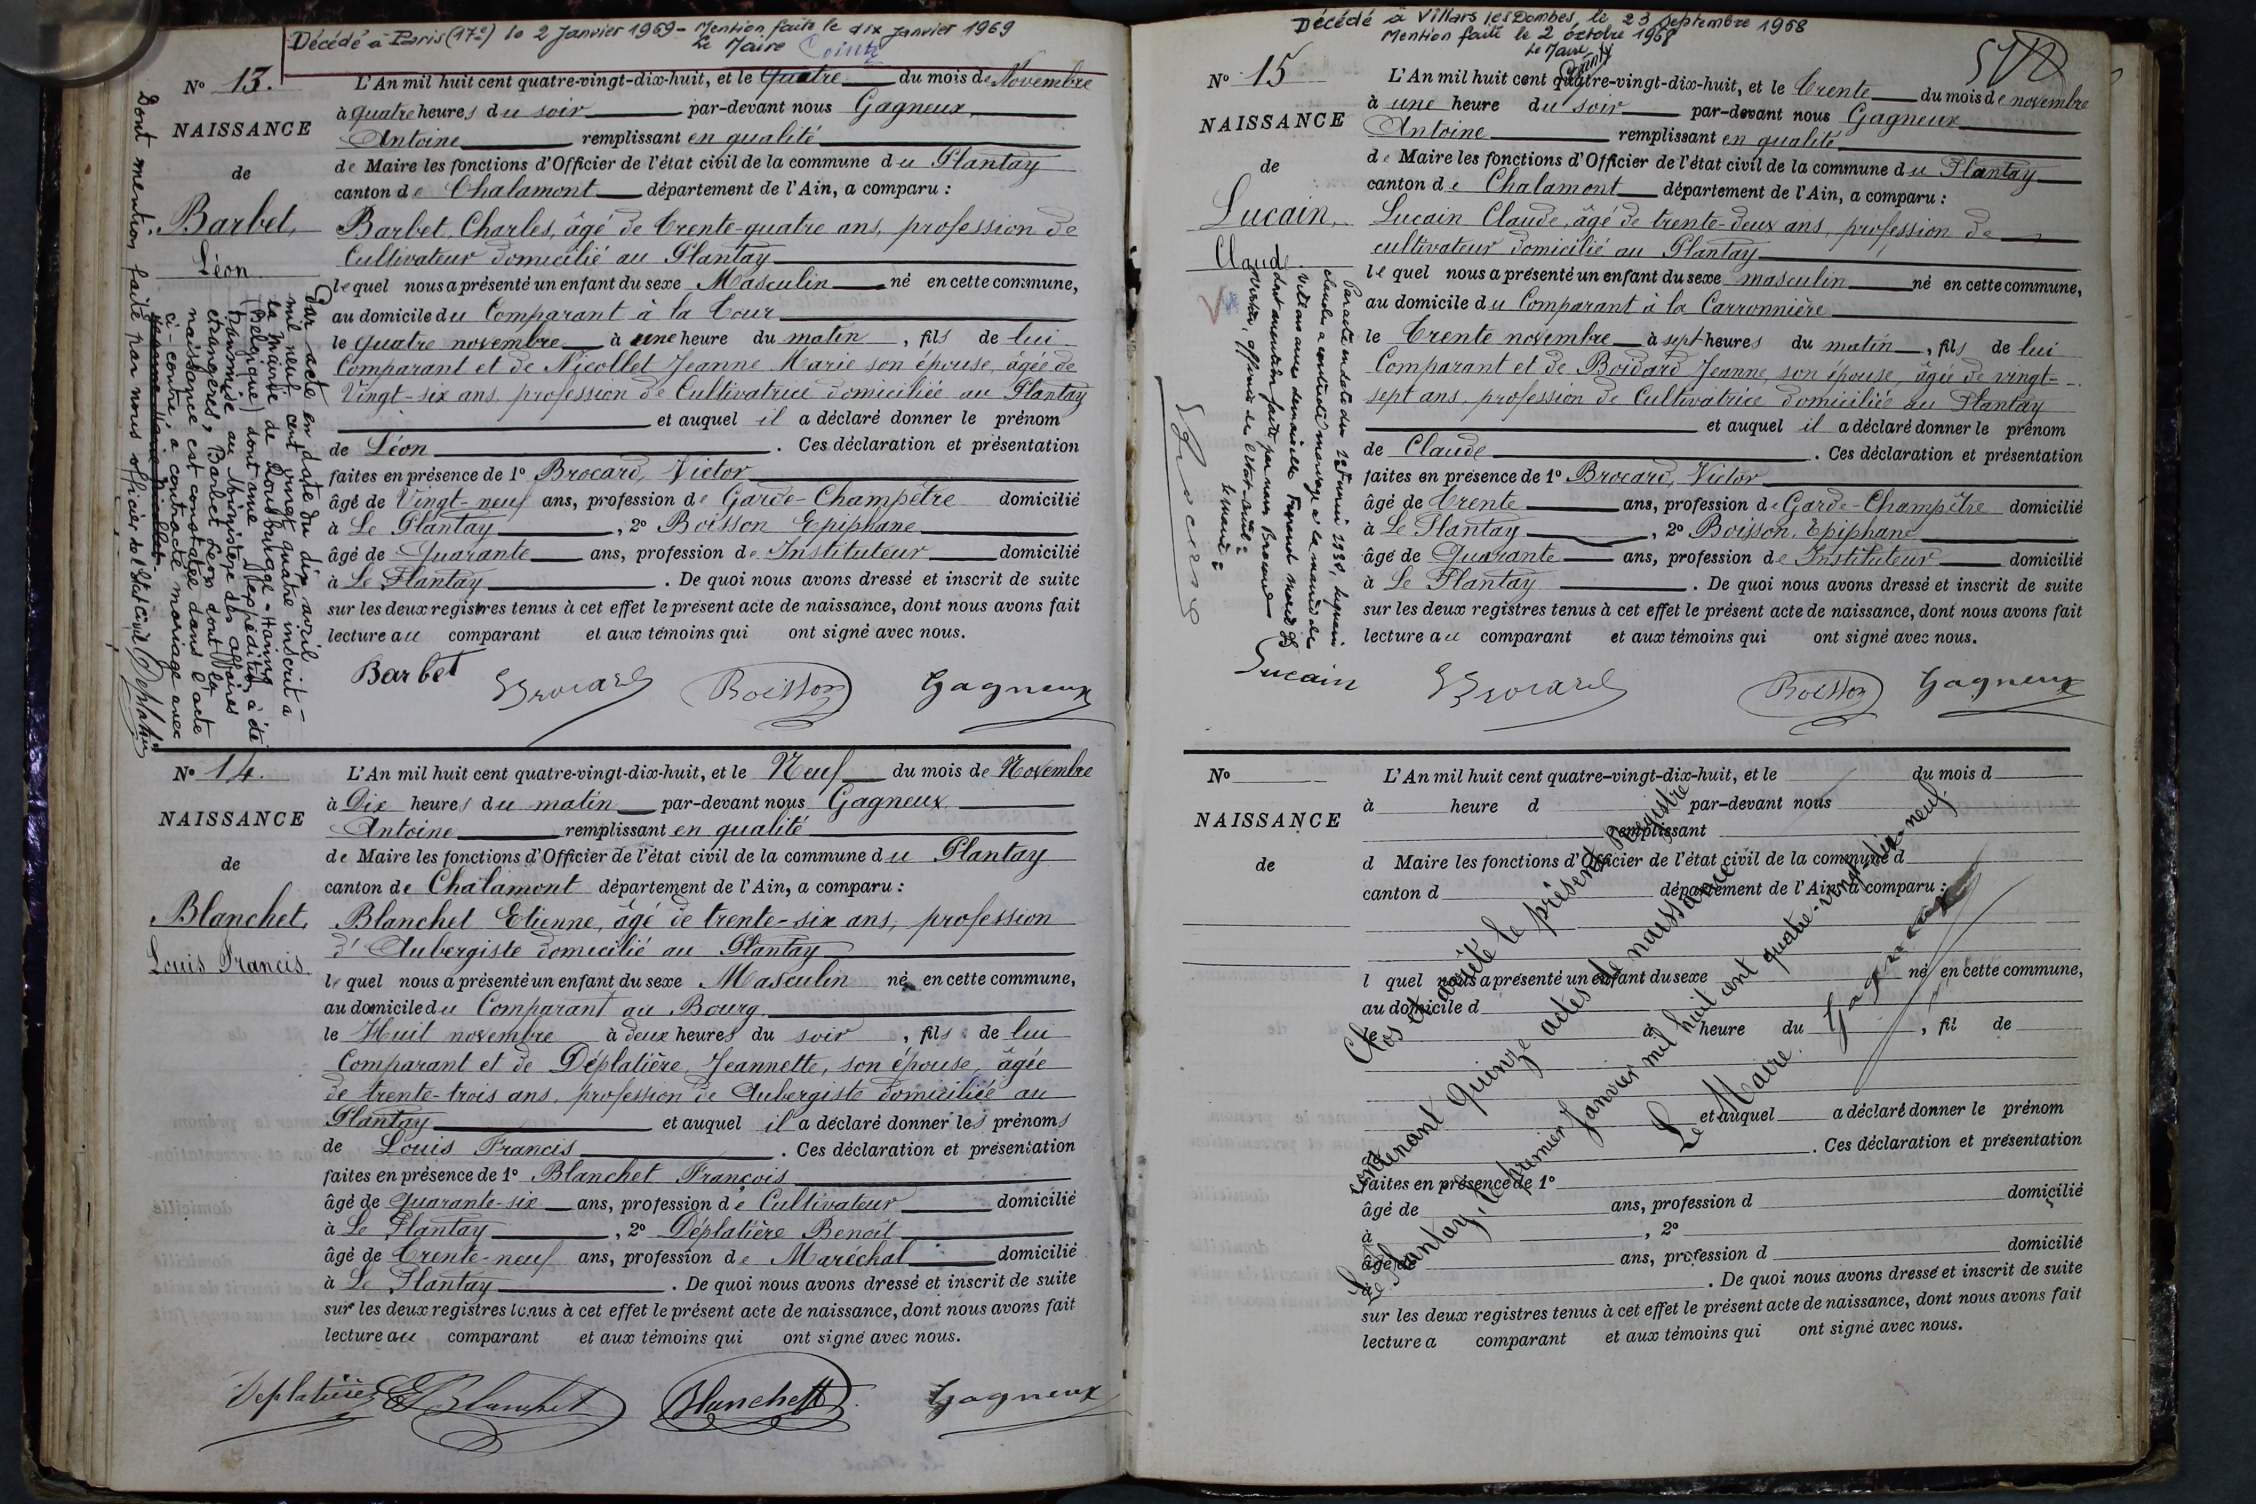 Décédé à Paris (17e) le 2 Janvier 1969 - Mention faite le dix Janvier 1969
Le Maire
N° 13.
NAISSANCE
de
Barbet,
Léon
L'An mil huit cent quatre-vingt-dix-huit, et le Quatre du mois de Novembre
à quatre heures du soir par-devant nous Gagneux,
Antoine remplissant en qualité
de Maire les fonctions d'Officier de l'état civil de la commune du Plantay
canton de Chalamont département de l'Ain, a comparu :
Barbet, Charles, âgé de trente-quatre ans, profession de
Cultivateur domicilié au Plantay
lequel nous a présenté un enfant du sexe Masculin né en cette commune,
au domicile du Comparant à la Cour
le quatre novembre à une heure du matin, fils de lui
Comparant et de Nicollet Jeanne Marie son épouse, âgée de
Vingt-six ans, profession de Cultivatrice domiciliée au Plantay
et auquel il a déclaré donner le prénom
de Léon. Ces déclaration et présentation
faites en présence de 1° Brocard, Victor
âgé de Vingt-neuf ans, profession de Garde-Champêtre domicilié
à Le Plantay, 2° Boisson Epiphane
âgé de Quarante ans, profession de Instituteur domicilié
à Le Plantay. De quoi nous avons dressé et inscrit de suite
sur les deux registres tenus à cet effet le présent acte de naissance, dont nous avons fait
lecture au comparant et aux témoins qui ont signé avec nous.
Barbet Brocard Boisson Gagneux
Par acte en date du dix avril
mil neuf cent vingt quatre inscrit à
la Mairie de
(Belgique) dont une expédition a été
transmise au Ministère des affaires
étrangères, Barbet Léon dont la
naissance est constatée dans l'acte
ci-contre, a contracté mariage avec
Dont mention faite par nous officier de l'état civil
N° 14.
NAISSANCE
de
Blanchet,
Louis Francis
L'An mil huit cent quatre-vingt-dix-huit, et le Neuf du mois de Novembre
à Dix heures du matin par-devant nous Gagneux
Antoine remplissant en qualité
de Maire les fonctions d'Officier de l'état civil de la commune du Plantay
canton de Chalamont département de l'Ain, a comparu :
Blanchet Etienne, âgé de trente-six ans, profession
d'Aubergiste domicilié au Plantay
lequel nous a présenté un enfant du sexe Masculin né en cette commune,
au domicile du Comparant au Bourg
le Huit novembre à deux heures du soir, fils de lui
Comparant et de Déplatière, Jeannette, son épouse, âgée
de trente-trois ans, profession de Aubergiste domiciliée au
Plantay et auquel il a déclaré donner les prénoms
de Louis Francis. Ces déclaration et présentation
faites en présence de 1° Blanchet François
âgé de quarante-six ans, profession de Cultivateur domicilié
à Le Plantay, 2° Déplatière Benoît
âgé de trente-neuf ans, profession de Maréchal domicilié
à Le Plantay. De quoi nous avons dressé et inscrit de suite
sur les deux registres tenus à cet effet le présent acte de naissance, dont nous avons fait
lecture au comparant et aux témoins qui ont signé avec nous.
Deplatière E Blanchet Blanchet Gagneux
Décédé à Villars les Dombes, le 23 Septembre 1968
Mention faite le 2 octobre 1968
Le Maire
N° 15
NAISSANCE
de
Lucain,
Claude
L'An mil huit cent quatre-vingt-dix-huit, et le trente du mois de novembre
à une heure du soir par-devant nous Gagneux
Antoine remplissant en qualité
de Maire les fonctions d'Officier de l'état civil de la commune du Plantay
canton de Chalamont département de l'Ain, a comparu :
Lucain Claude, âgé de trente-deux ans, profession de
cultivateur domicilié au Plantay
lequel nous a présenté un enfant du sexe masculin né en cette commune,
au domicile du Comparant à la Carronnière
le trente novembre à sept heures du matin, fils de lui
Comparant et de Boidard Jeanne, son épouse, âgée de vingt-
sept ans, profession de Cultivatrice domiciliée au Plantay
et auquel il a déclaré donner le prénom
de Claude. Ces déclaration et présentation
faites en présence de 1° Brocard, Victor
âgé de trente ans, profession de Garde-Champêtre domicilié
à Le Plantay, 2° Boisson, Epiphane
âgé de Quarante ans, profession de Instituteur domicilié
à Le Plantay. De quoi nous avons dressé et inscrit de suite
sur les deux registres tenus à cet effet le présent acte de naissance, dont nous avons fait
lecture au comparant et aux témoins qui ont signé avec nous.
Lucain Brocard Boisson Gagneux
Par acte en date du
claude a contracté mariage à la mairie de
Villars avec demoiselle
dont mention faite par nous Brocard
officier de l'état-civil
le maire
Brocard
N°
NAISSANCE
de
L'An mil huit cent quatre-vingt-dix-huit, et le du mois d
à heure d par-devant nous
remplissant
d Maire les fonctions d'Officier de l'état civil de la commune d
canton d département de l'Ain, a comparu :
l quel nous a présenté un enfant du sexe né en cette commune,
au domicile d
le à heure du , fil de
et auquel a déclaré donner le prénom
de . Ces déclaration et présentation
faites en présence de 1°
âgé de ans, profession d domicilié
à , 2°
âgé de ans, profession d domicilié
à . De quoi nous avons dressé et inscrit de suite
sur les deux registres tenus à cet effet le présent acte de naissance, dont nous avons fait
lecture a comparant et aux témoins qui ont signé avec nous.
Clos et arrêté le présent Registre
contenant quinze actes de naissance
Le Plantay, le premier Janvier mil huit cent quatre-vingt-dix-neuf.
Le Maire.
Gagneux